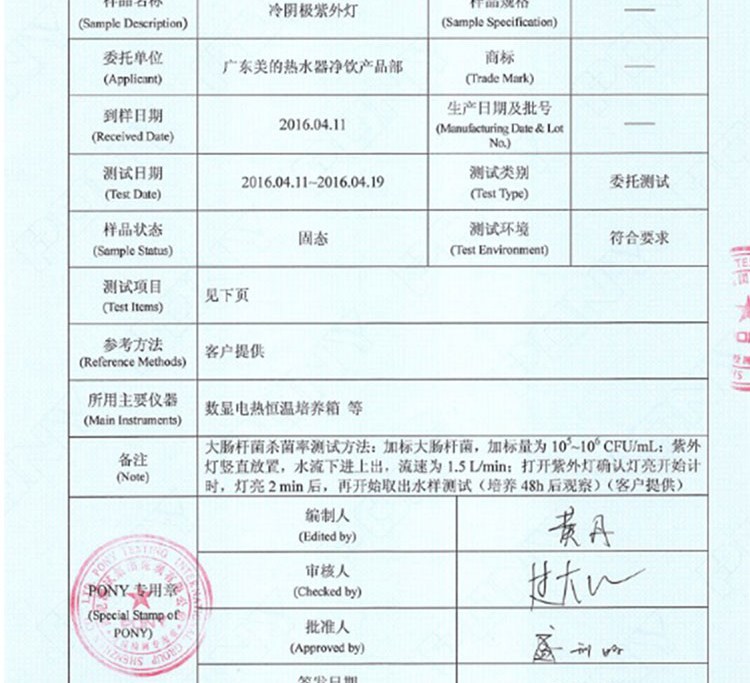 样品名称
(Sample Description)
冷阴极紫外灯
样品规格
(Sample Specification)
——
委托单位
(Applicant)
广东美的热水器净饮产品部
商标
(Trade Mark)
——
到样日期
(Received Date)
2016.04.11
生产日期及批号
(Manufacturing Date & Lot
No.)
——
测试日期
(Test Date)
2016.04.11~2016.04.19
测试类别
(Test Type)
委托测试
样品状态
(Sample Status)
固态
测试环境
(Test Environment)
符合要求
测试项目
(Test Items)
见下页
参考方法
(Reference Methods)
客户提供
所用主要仪器
(Main Instruments)
数显电热恒温培养箱 等
备注
(Note)
大肠杆菌杀菌率测试方法：加标大肠杆菌，加标量为 10⁵~10⁶ CFU/mL；紫外
灯竖直放置，水流下进上出，流速为 1.5 L/min；打开紫外灯确认灯亮开始计
时，灯亮 2 min 后，再开始取出水样测试（培养 48h 后观察）（客户提供）
PONY 专用章
(Special Stamp of
PONY)
编制人
(Edited by)
黄丹
审核人
(Checked by)
批准人
(Approved by)
签发日期